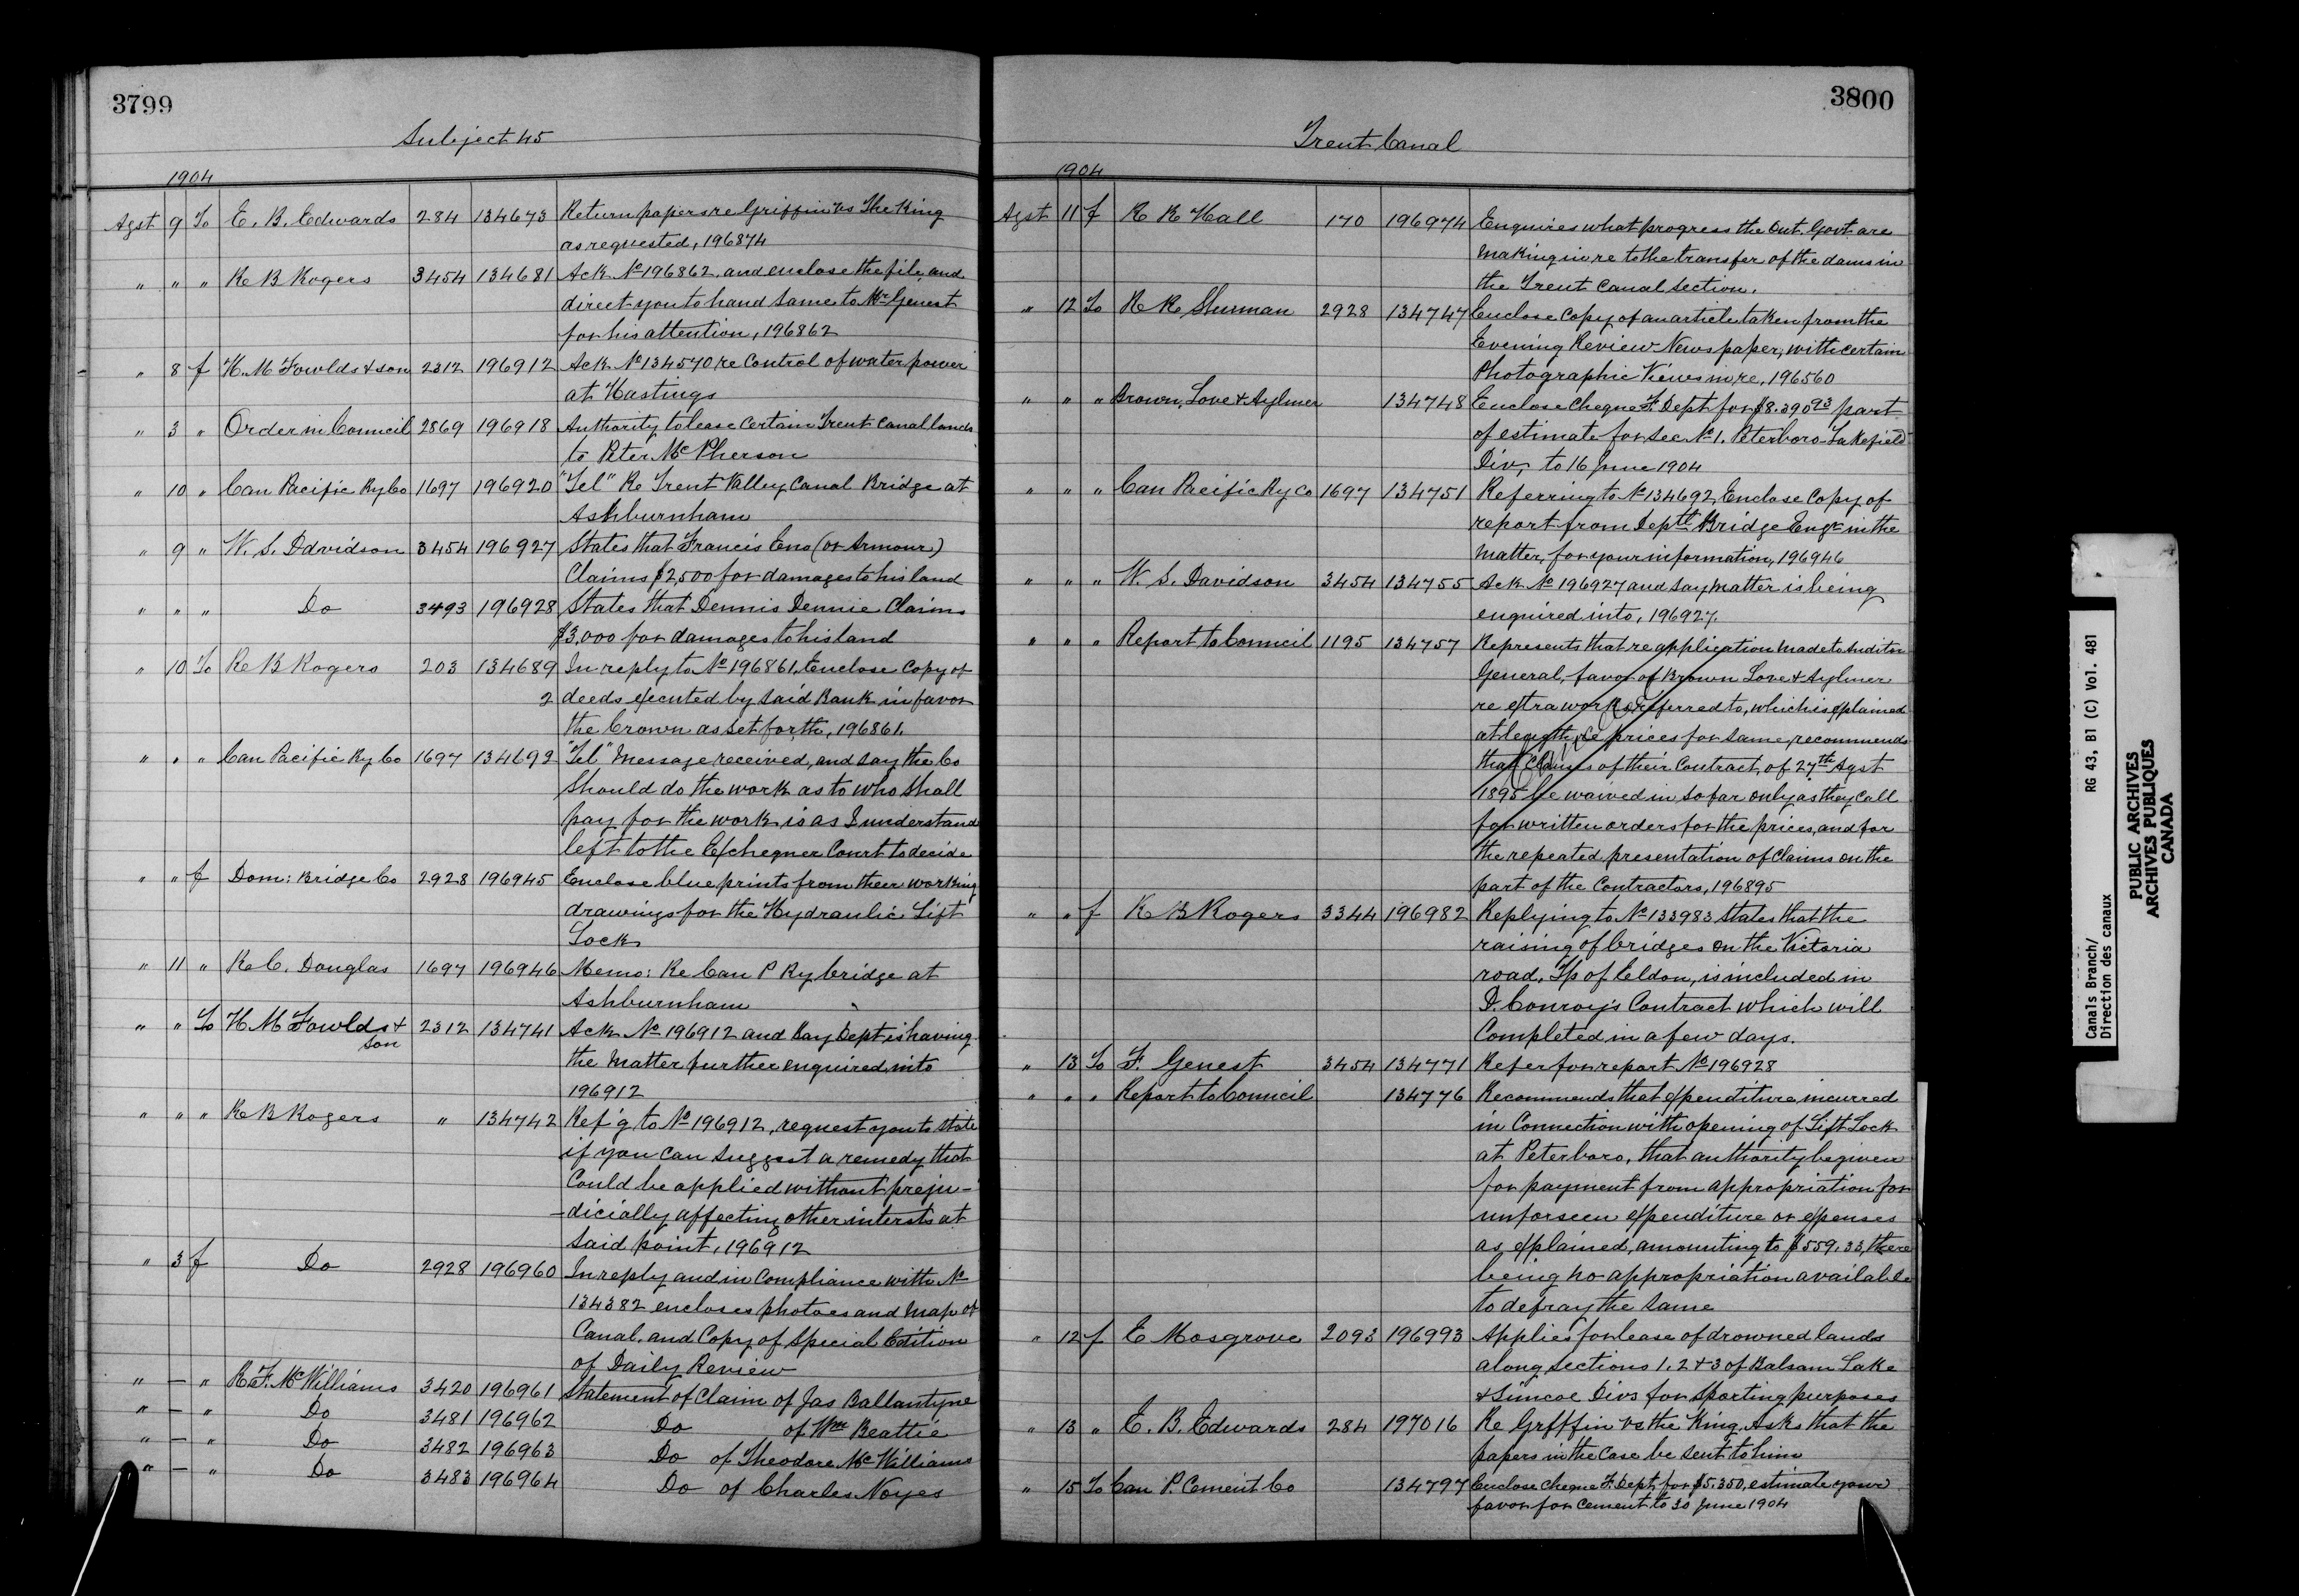 3799
Subject 45
1904
Agst 9 To E. B. Edwards 284 134673 Return papers re Griffin vs The King
as requested, 196874
" " " R B Rogers 3454 134681 Ack No 196862, and enclose the file and
direct you to hand same to Mr Genest
for his attention, 196862
" 8 f H. M Fowlds & son 2312 196912 Ack No 134570 re Control of water power
at Hastings
" 3 " Order in Council 2869 196918 Authority to lease certain Trent canal lands
to Peter McPherson
" 10 " Can Pacific Ry Co 1697 196920 "Tel" Re Trent Valley Canal Bridge at
Ashburnham
" 9 " W. S. Davidson 3454 196927 States that Francis Eno (or Armour)
Claims $2,500 for damages to his land
" " " Do 3493 196928 States that Dennis Dennie Claims
$3,000 for damages to his land
" 10 To R B Rogers 203 134689 In reply to No 196861, Enclose Copy of
2 deeds executed by said Bank in favor
the Crown as set forth, 196861.
" " " Can Pacific Ry Co 1697 134692 "Tel" Message received, and say the Co
should do the work as to who shall
pay for the work is as I understand
left to the Exchequer Court to decide
" " f Dom: Bridge Co 2928 196945 Enclose blue prints from their working
drawings for the Hydraulic Lift
Lock
" 11 " R C. Douglas 1697 196946 Memo: Re Can P Ry bridge at
Ashburnham
" " To H M Fowlds &
son 2312 134741 Ack No 196912 and Say Dept is having
the matter further enquired into
196912
" " " R B Rogers " 134742 Ref'g to No 196912, request you to state
if you can suggest a remedy that
Could be applied without preju-
-dicially affecting other intersts at
said point, 196912
" 3 f Do 2928 196960 In reply and in Compliance with No
134382 encloses photoes and map of
Canal, and Copy of Special Edition
of Daily Review
" — " R. F. McWilliams 3420 196961 Statement of Claim of Jas Ballantyne
" — " Do 3481 196962 Do of Wm Beattie
" — " Do 3482 196963 Do of Theodore McWilliams
" — " Do 3483 196964 Do of Charles Noyes
3800
Trent Canal
1904
Agst 11 f R R Hall 170 196974 Enquires what progress the Ont. Govt. are
making in re to the transfer of the dams in
the Trent Canal section.
" 12 To 2928 134747 Enclose Copy of an article taken from the
Evening Review Newspaper, with certain
Photographic Views in re, 196560
" " " Brown, Love & Aylmer 134748 Enclose Cheque F. Dept for $8.390 93 part
of estimate for Sec No 1. Peterboro-Lakefield
Div, to 16 June 1904
" " " Can Pacific Ry Co 1697 134751 Referring to No 134692, Enclose Copy of
report from Deptl Bridge Engr in the
matter, for your information, 196946
" " " W. S. Davidson 3454 134755 Ack No 196927 and say matter is being
enquired into, 196927.
" " " Report to Council 1195 134757 Represents that re application made to Auditor
General, favor of Brown Love & Aylmer
re extra works referred to, which is explained
at length, re prices for same, recommends
that Clauses of their Contract, of 27th Agst
1895 be waived in so far only as they call
for written orders for the prices, and for
the repeated presentation of claims on the
part of the Contractors, 196895
" " f R B Rogers 3344 196982 Replying to No 133983 States that the
raising of bridges on the Victoria
road, Tp of Eldon, is included in
D. Conroy's Contract which will
Completed in a few days.
" 13 To F. Genest 3454 134771 Refer for report No 196928
" " " Report to Council 134776 Recommends that expenditure incurred
in Connection with opening of Lift Lock
at Peterboro, that authority be given
for payment from appropriation for
unforseen expenditure or expenses
as explained, amounting to $559.33, there
being no appropriation available
to defray the same
" 12 f E Mosgrove 2093 196993 Applies for lease of drowned lands
along sections 1, 2 & 3 of Balsam Lake
& Simcoe Divs for sporting purposes
" 13 " E. B. Edwards 284 197016 Re Grffin vs the King, Asks that the
papers in the Case be sent to him
" 15 To Can P. Cement Co 134797 Enclose Cheque F. Dept for $5,350, estimate your
favor for cement to 30 June 1904
Canals Branch/ RG 43, B1 (C) Vol. 481
Direction des canaux
PUBLIC ARCHIVES
ARCHIVES PUBLIQUES
CANADA